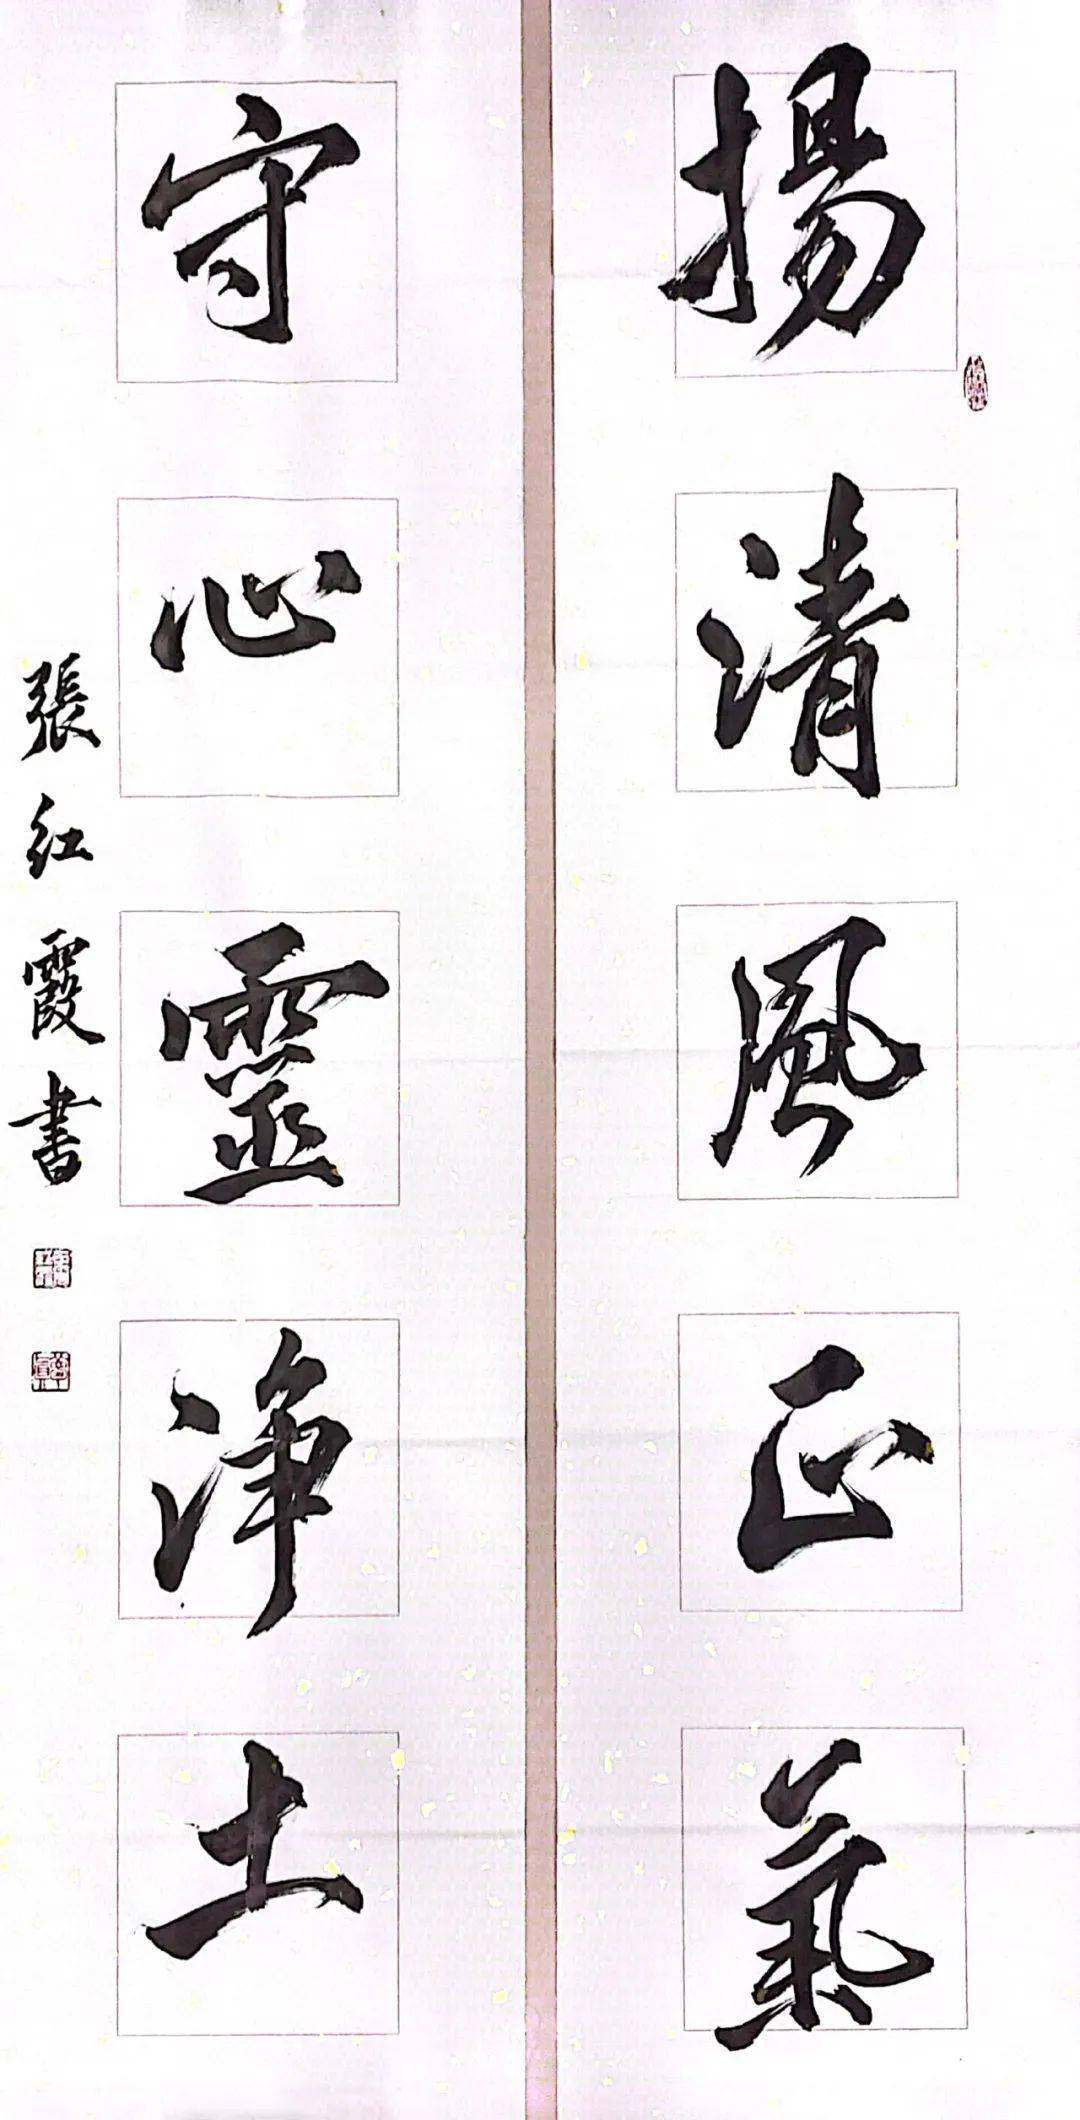 揚清風正氣
守心靈净土
張红霞書